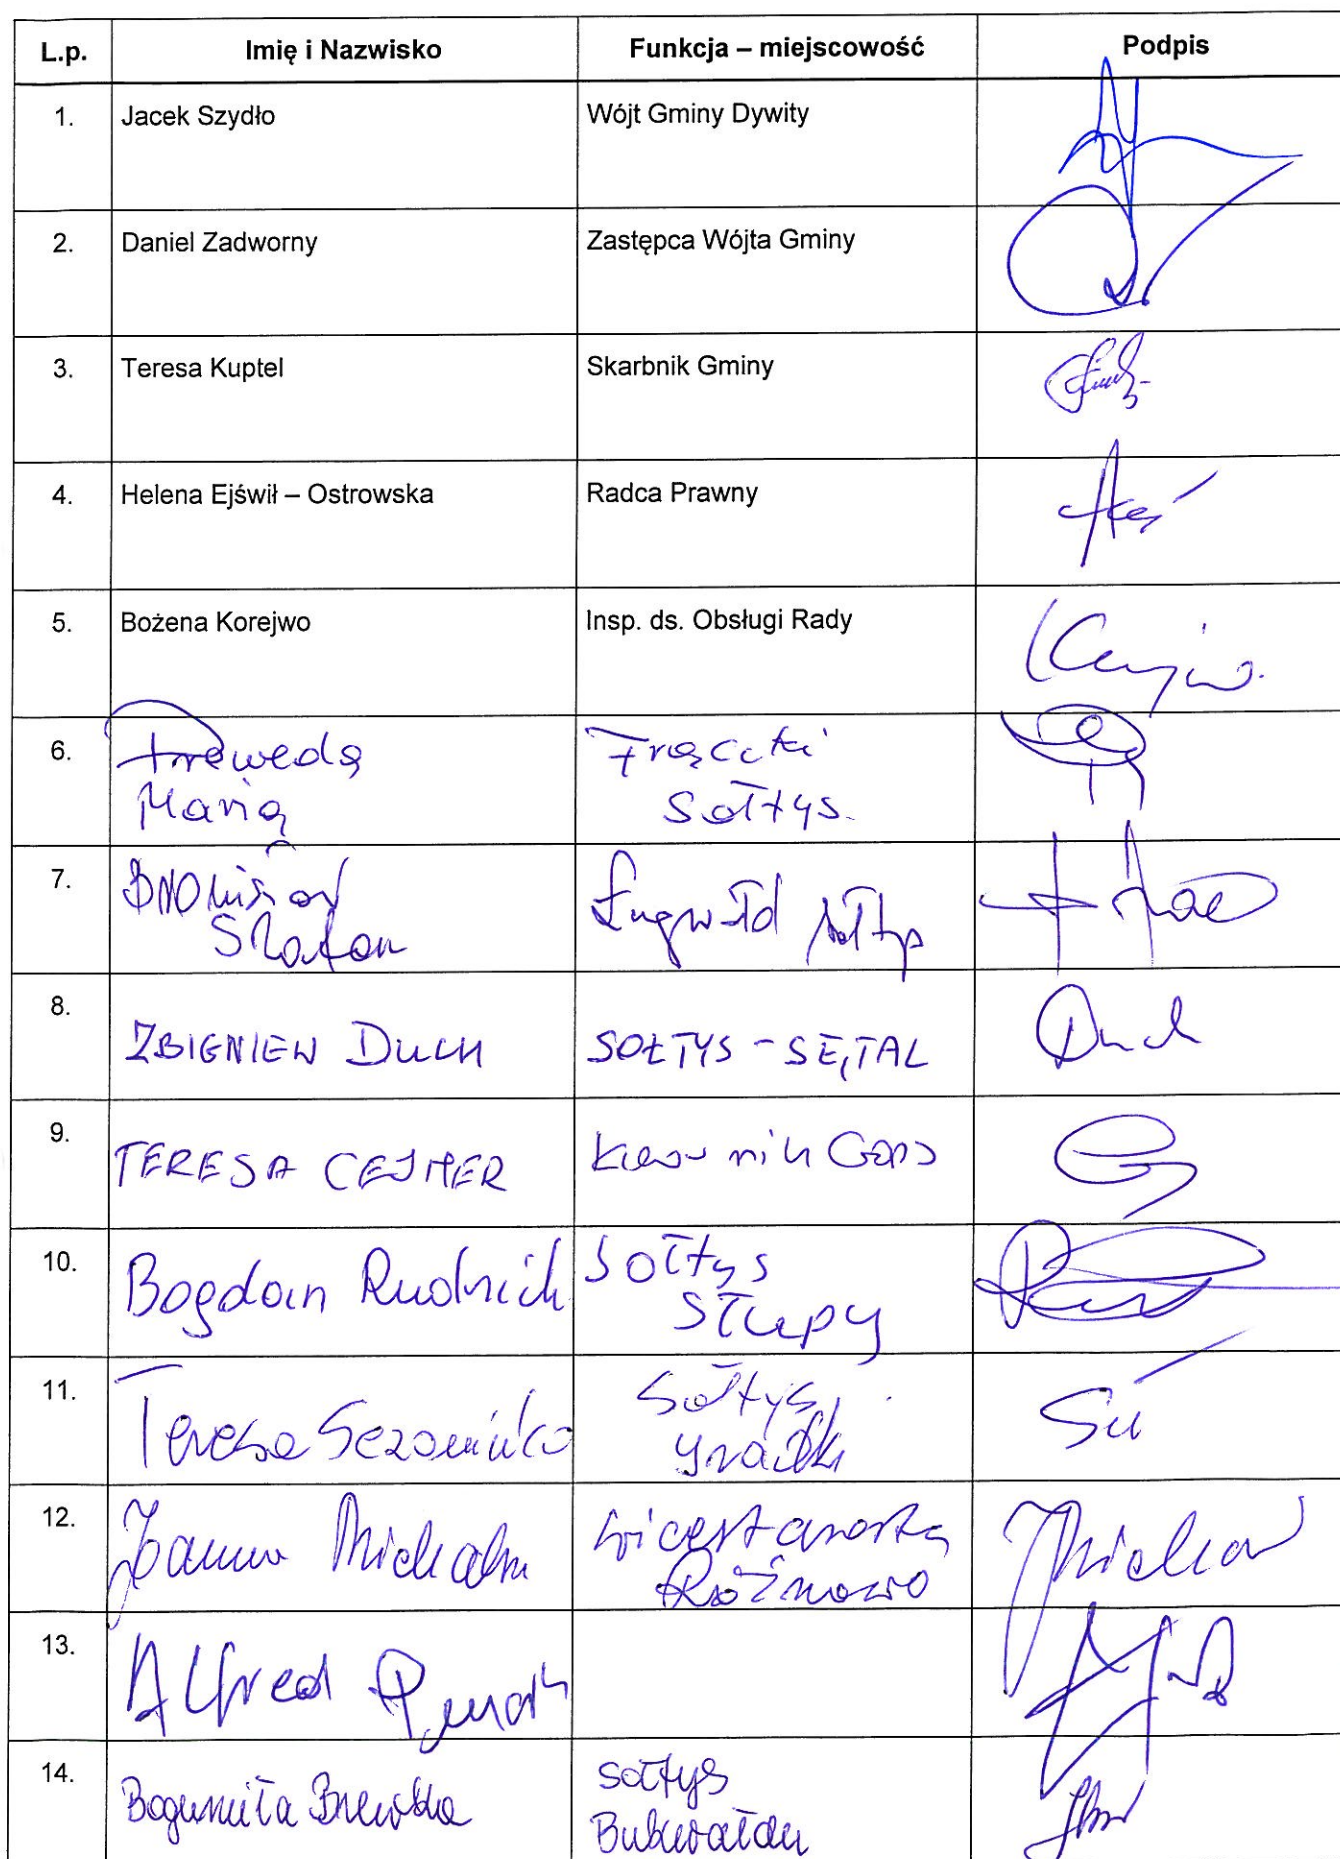 L.p. Imię i Nazwisko Funkcja – miejscowość Podpis
1. Jacek Szydło Wójt Gminy Dywity
2. Daniel Zadworny Zastępca Wójta Gminy
3. Teresa Kuptel Skarbnik Gminy
4. Helena Ejświł – Ostrowska Radca Prawny
5. Bożena Korejwo Insp. ds. Obsługi Rady
6. Frączki
Maria Sołtys.
7. Ługwałd sołtys
8. ZBIGNIEW DUCH SOŁTYS - SĘTAL Duch
9. TERESA CEJMER Kierownik GOPS
10. Bogdan Rudnick Sołtys
Słupy
11. Teresa Sołtys
Gradki
12. Joanna Michaln wicestarosta
Różnowo
13. Alfred
14. Bogumiła sołtys
Bukwałdu